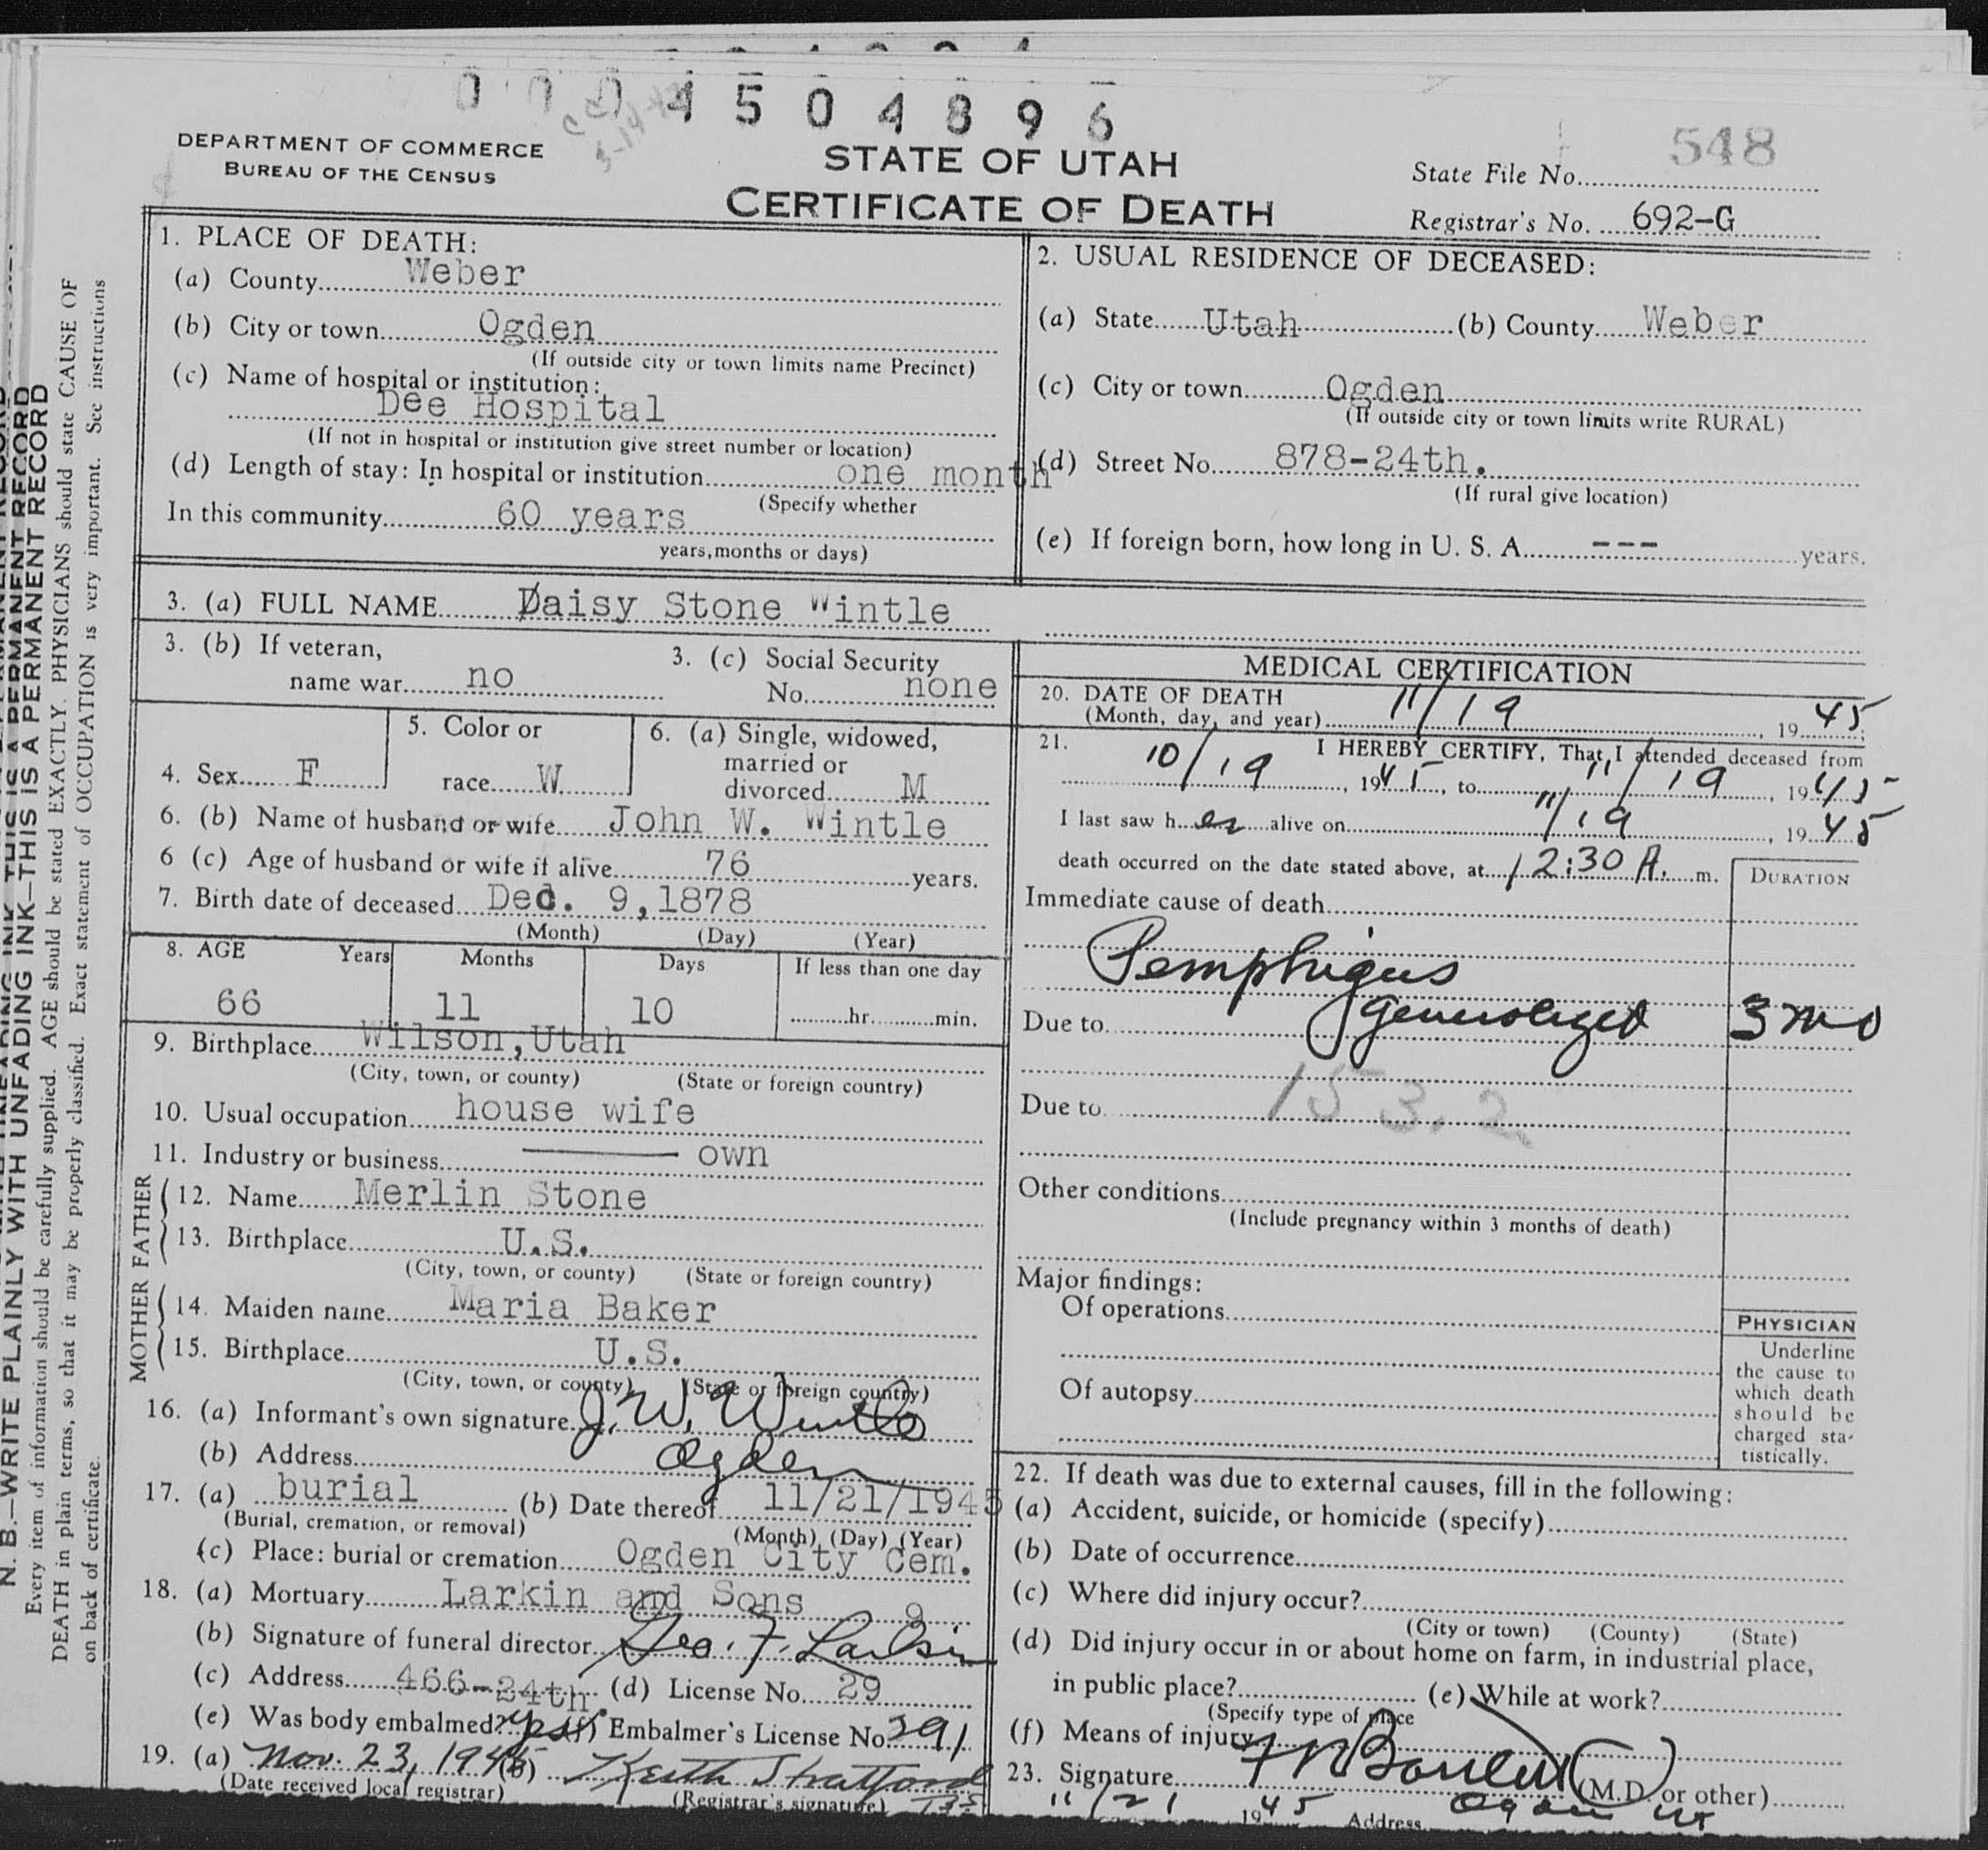 0 0 0 4 5 0 4 8 9 6
DEPARTMENT OF COMMERCE
BUREAU OF THE CENSUS
STATE OF UTAH
CERTIFICATE OF DEATH
548
State File No.
Registrar's No. 692-G
1. PLACE OF DEATH:
(a) County Weber
(b) City or town Ogden
(If outside city or town limits name Precinct)
(c) Name of hospital or institution:
Dee Hospital
(If not in hospital or institution give street number or location)
(d) Length of stay: In hospital or institution one month
(Specify whether
In this community 60 years
years, months or days)
2. USUAL RESIDENCE OF DECEASED:
(a) State Utah (b) County Weber
(c) City or town Ogden
(If outside city or town limits write RURAL)
(d) Street No. 878-24th.
(If rural give location)
(e) If foreign born, how long in U. S. A. --- years.
3. (a) FULL NAME Daisy Stone Wintle
3. (b) If veteran,
name war no
3. (c) Social Security
No. none
4. Sex F
5. Color or
race W
6. (a) Single, widowed,
married or
divorced M
6. (b) Name of husband or wife John W. Wintle
6 (c) Age of husband or wife if alive 76 years.
7. Birth date of deceased Dec. 9, 1878
(Month) (Day) (Year)
8. AGE Years Months Days If less than one day
66 11 10 hr. min.
9. Birthplace Wilson, Utah
(City, town, or county) (State or foreign country)
10. Usual occupation house wife
11. Industry or business own
FATHER
12. Name Merlin Stone
13. Birthplace U.S.
(City, town, or county) (State or foreign country)
MOTHER
14. Maiden name Maria Baker
15. Birthplace U.S.
(City, town, or county) (State or foreign country)
16. (a) Informant's own signature J. W. Wintle
(b) Address Ogden
17. (a) burial (b) Date thereof 11/21/1945
(Burial, cremation, or removal) (Month) (Day) (Year)
(c) Place: burial or cremation Ogden City Cem.
18. (a) Mortuary Larkin and Sons
(b) Signature of funeral director Geo. F. Larkin
(c) Address 466-24th. (d) License No. 29
(e) Was body embalmed? yes (f) Embalmer's License No. 391
19. (a) Nov. 23, 1945 (b) Keith Stratford
(Date received local registrar) (Registrar's signature)
MEDICAL CERTIFICATION
20. DATE OF DEATH
(Month, day, and year) 11/19, 1945
21. I HEREBY CERTIFY, That I attended deceased from
10/19, 1945, to 11/19, 1945
I last saw her alive on 11/19, 1945
death occurred on the date stated above, at 12:30 A. m.
DURATION
Immediate cause of death
Pemphigus
Due to generalized 3 mo
153.2
Due to
Other conditions
(Include pregnancy within 3 months of death)
Major findings:
Of operations
Of autopsy
PHYSICIAN
Underline
the cause to
which death
should be
charged sta-
tistically.
22. If death was due to external causes, fill in the following:
(a) Accident, suicide, or homicide (specify)
(b) Date of occurrence
(c) Where did injury occur?
(City or town) (County) (State)
(d) Did injury occur in or about home on farm, in industrial place,
in public place? (e) While at work?
(Specify type of place
(f) Means of injury
23. Signature (M.D. or other)
11/21 1945 Address Ogden Ut
N. B.—WRITE PLAINLY WITH UNFADING INK—THIS IS A PERMANENT RECORD
Every item of information should be carefully supplied. AGE should be stated EXACTLY. PHYSICIANS should state CAUSE OF
DEATH in plain terms, so that it may be properly classified. Exact statement of OCCUPATION is very important. See instructions
on back of certificate.